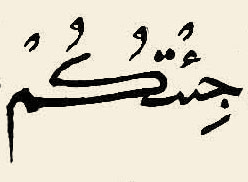 جِئْتُكُمُ